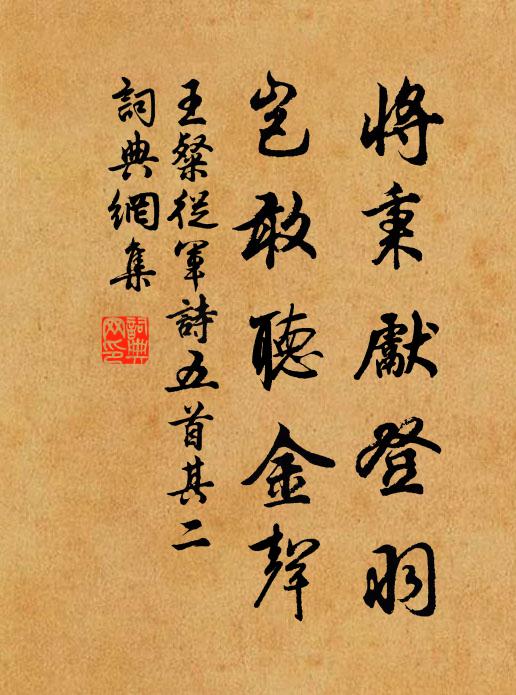 將秉獻登羽
豈敢聽金聲
王粲從軍詩五首其二
詞典網集
詞典
网印